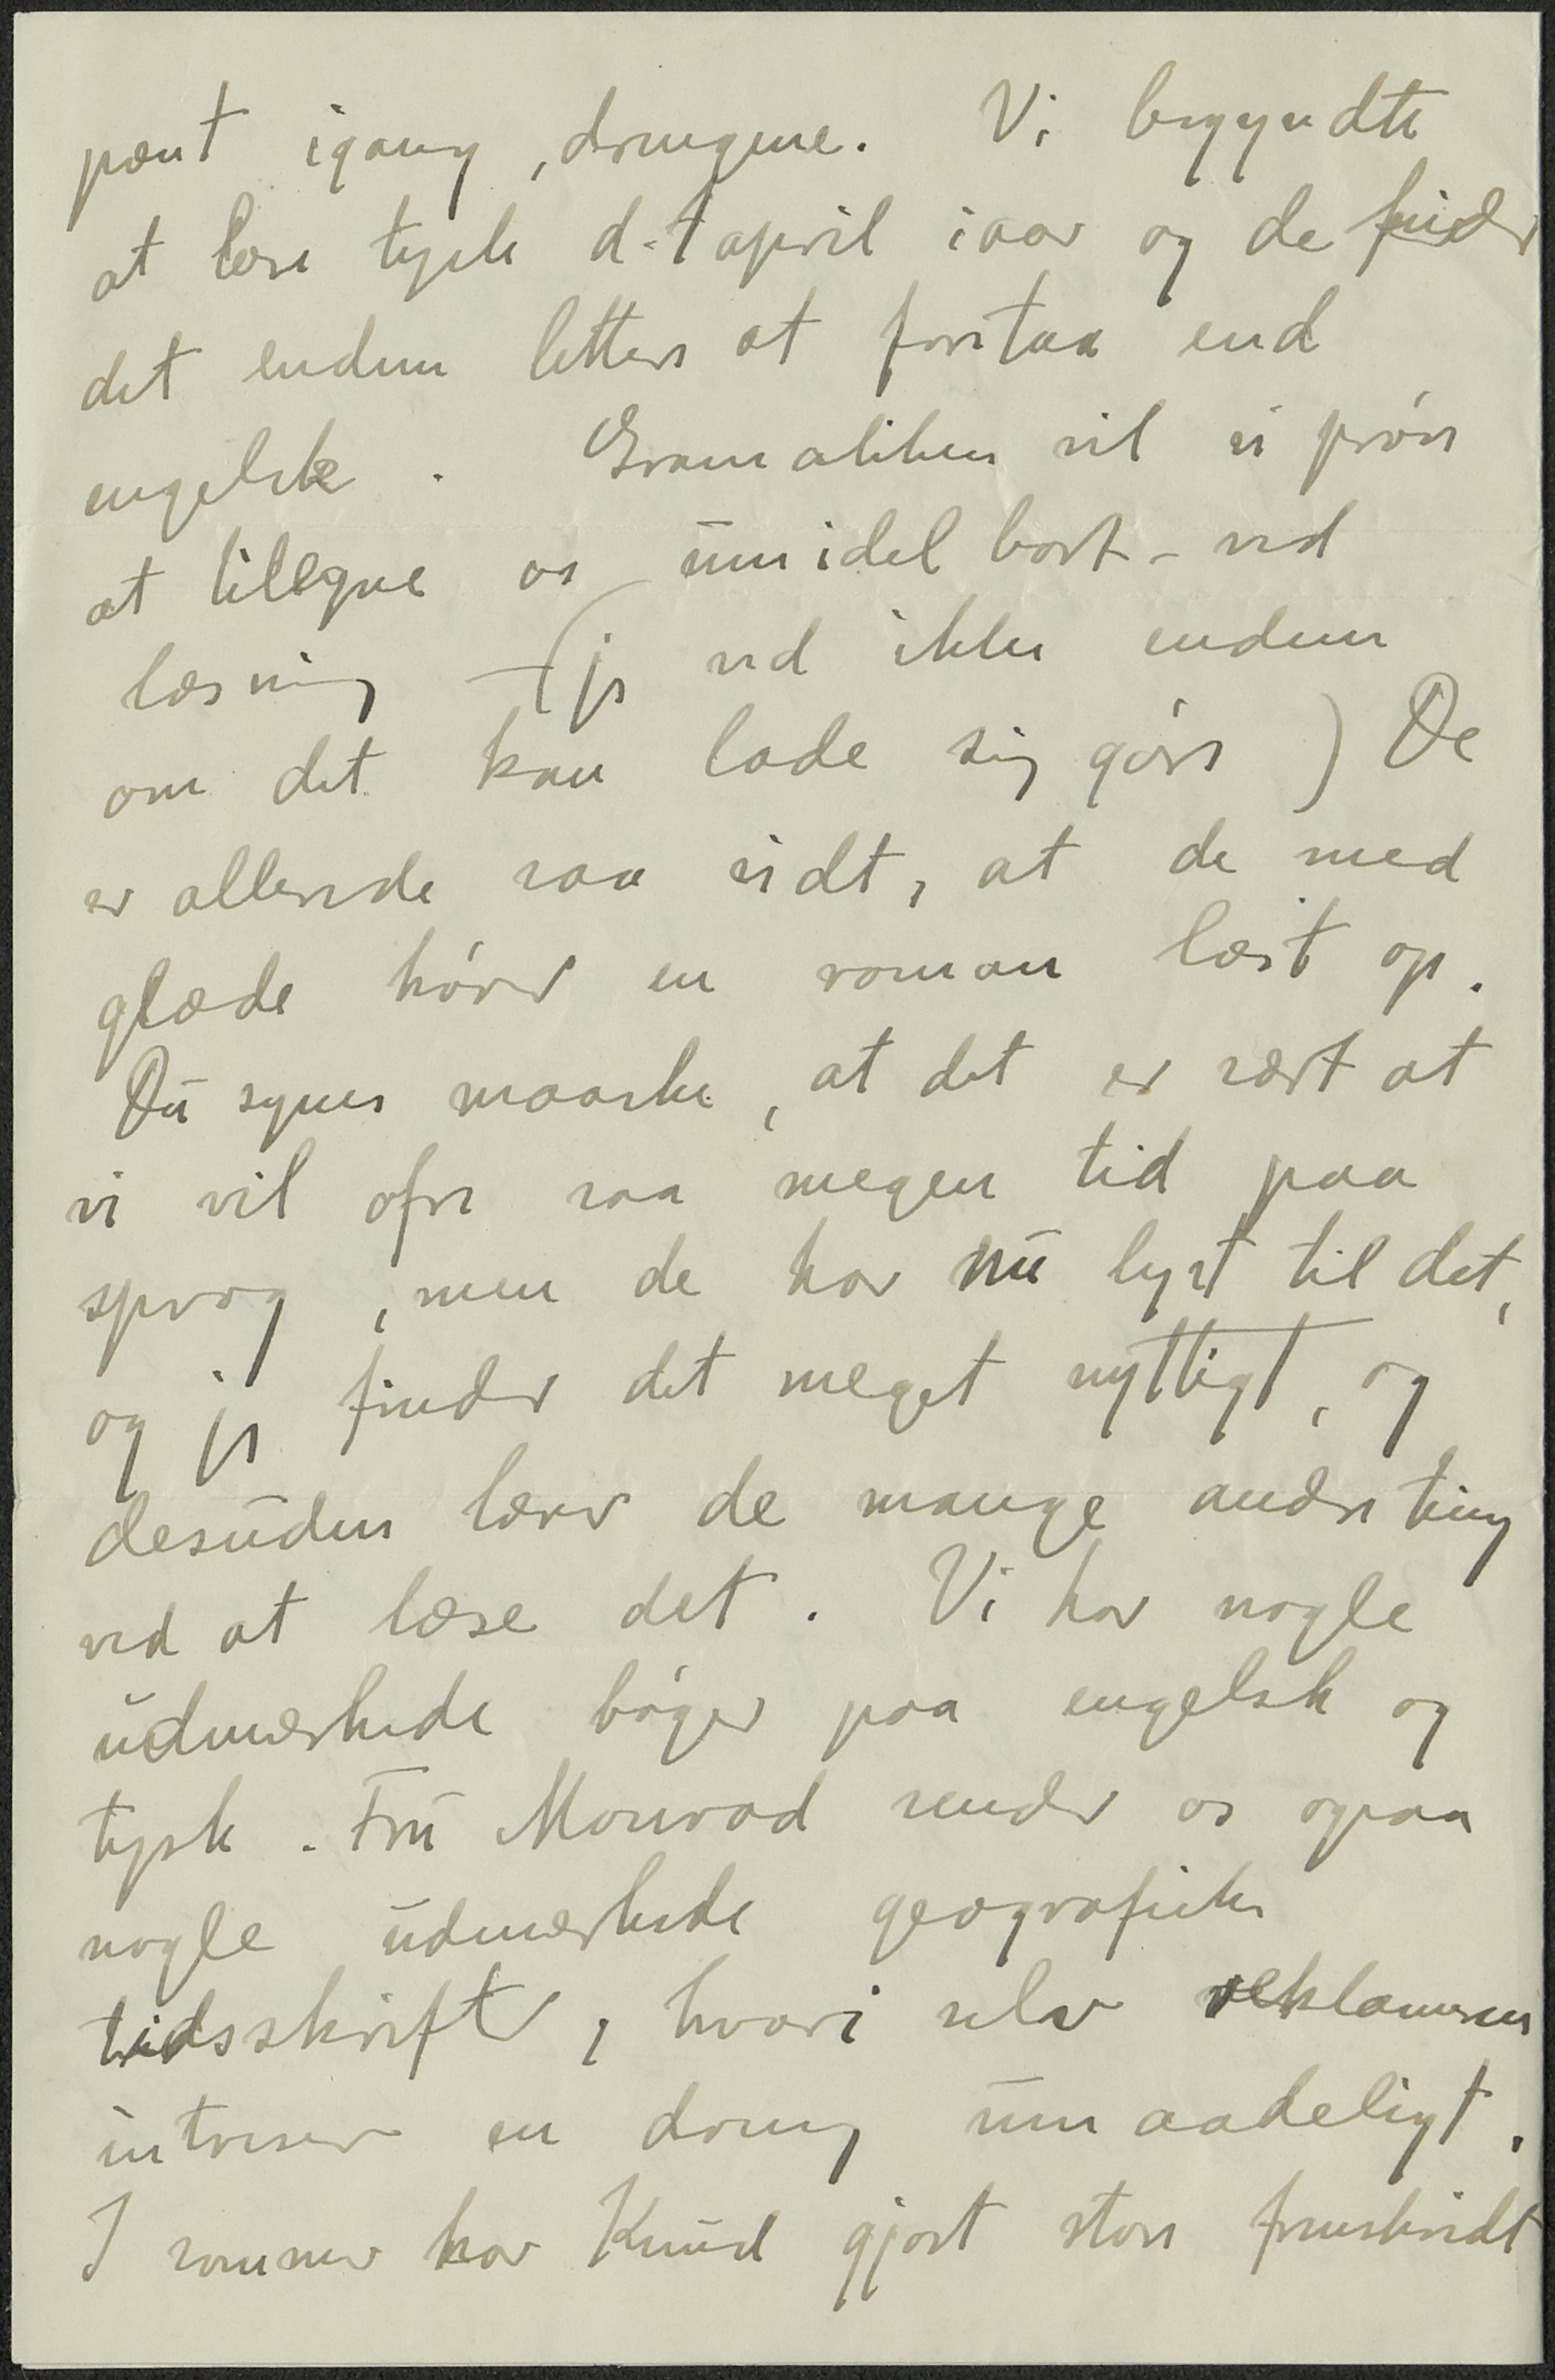 pænt igang, drengene. Vi begyndte
at læse tysk d. 1 april iaar og de finder
det endnu lettere at forstaa end
engelsk. Gramatiken vil vi prøve
at tilegne os umidelbart - ved
læsning - (jeg ved ikke endnu
om det kan lade sig gøre) De
er allerede saa vidt, at de med
glæde hører en roman læst op.
Du synes maaske, at det er sært at
vi vil ofre saa megen tid paa
sprog, men de har nu lyst til det,
og jeg finder det meget nyttigt, og
desuden lærer de mange andre ting
ved at læse det. Vi har nogle
udmærkede bøger paa engelsk og
tysk. Fru Monrad sender os ogsaa
nogle udmærkede geografiske
tidsskrifter, hvori selv reklamerne
intreser en dreng umaadeligt.
I sommer har Knud gjort store fremskridt